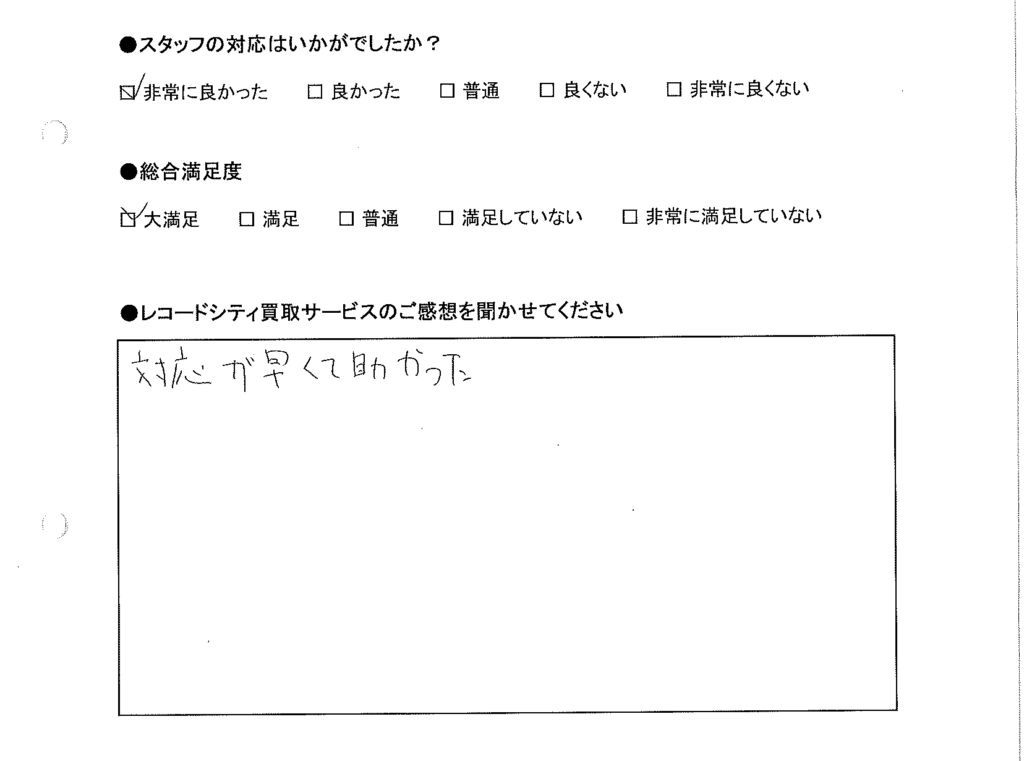 ●スタッフの対応はいかがでしたか？
☑非常に良かった　□良かった　□普通　□良くない　□非常に良くない
●総合満足度
☑大満足　□満足　□普通　□満足していない　□非常に満足していない
●レコードシティ買取サービスのご感想を聞かせてください
対応が早くて助かった